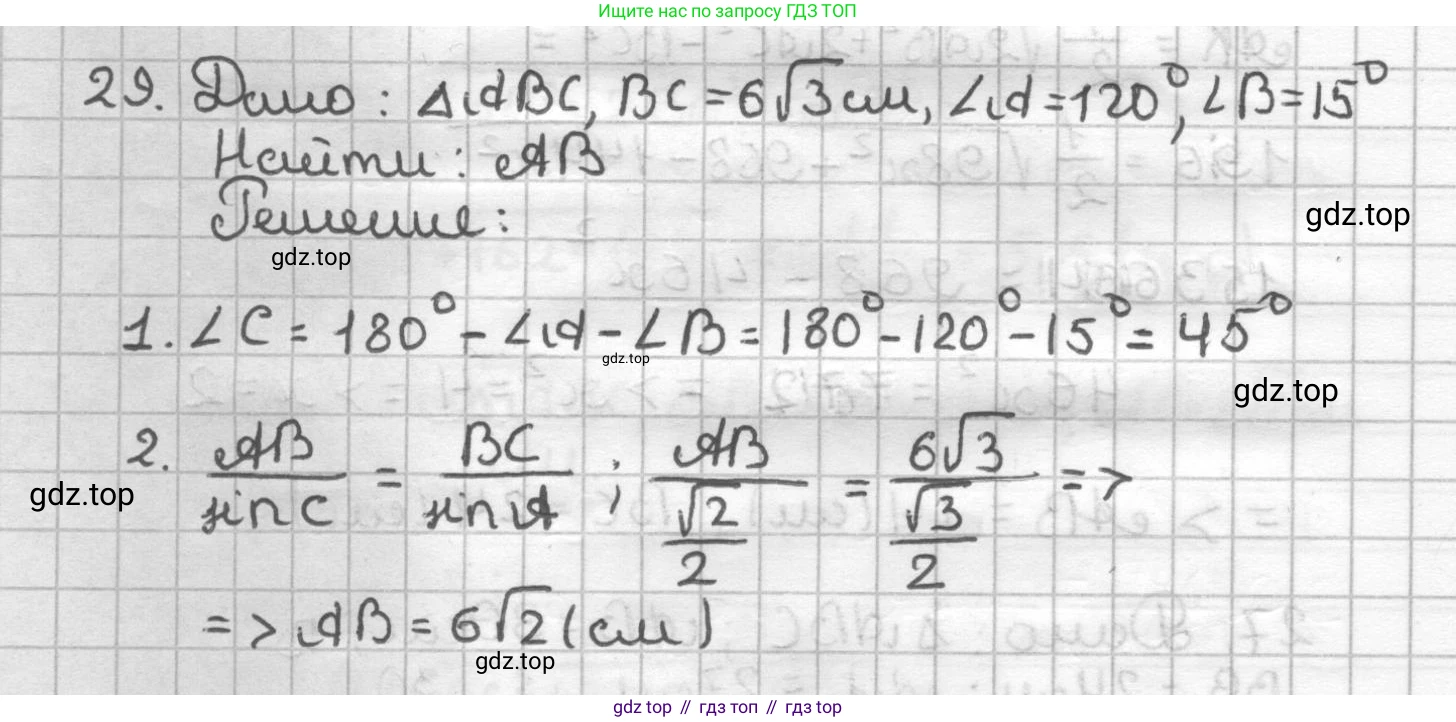 Ищите нас по запросу ГДЗ ТОП
29. Дано: ΔABC, BC = 6√3 см, ∠A = 120°, ∠B = 15°
Найти: AB
Решение:
gdz.top
gdz.top
1. ∠C = 180° - ∠A - ∠B = 180° - 120° - 15° = 45°
gdz.top
gdz.top
2. AB/sin C = BC/sin A ; AB/(√2/2) = 6√3/(√3/2) =>
gdz.top
=> AB = 6√2 (см)
gdz.top
gdz top // гдз топ // гдз top